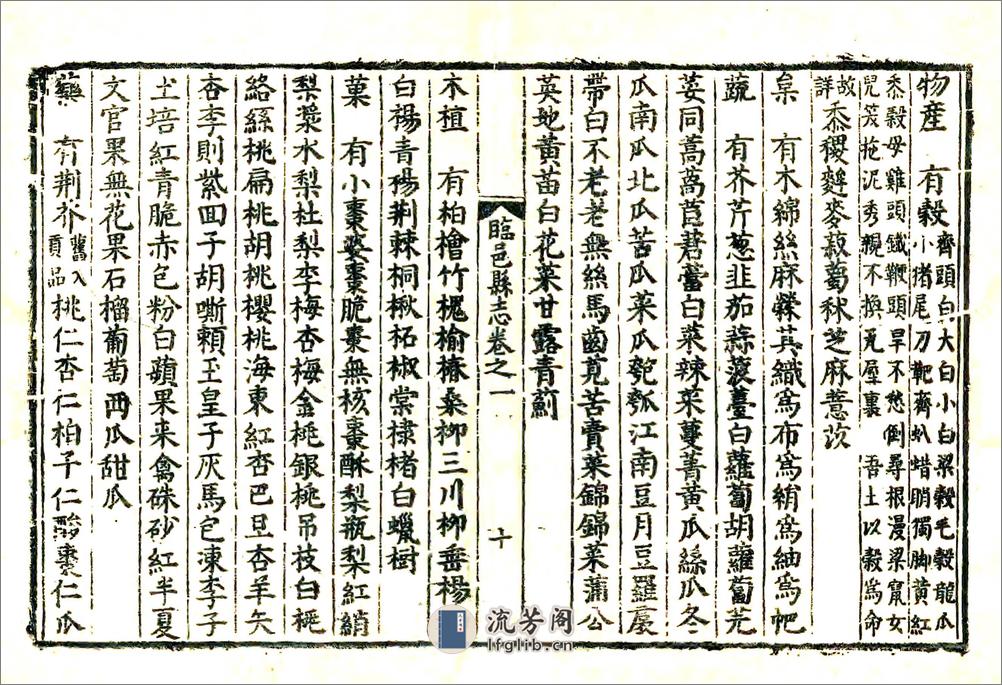 物產　有穀齊頭白大白小白粱穀毛穀龍瓜
小猪尾刀靶齊虯蜡腳獨脚黃紅
黍穀母雞頭鐵鞭頭旱不愁倒尋根漫梁甯女
兒笑拖泥秀親不換瓦壓裏　吾土以穀爲命
故詳黍稷麰麥菽蕎秫芝麻薏苡
枲　有木綿絲麻檾其織爲布爲絹爲紬爲帊
蔬　有芥芹葱韭茄蒜菠薹白蘿蔔胡蘿蔔芫
荽同蒿萵苣莙薘白菜辣菜蔓菁黃瓜絲瓜冬
瓜南瓜北瓜苦瓜菜瓜瓠瓢江南豆月豆羅
帶白不老老無絲馬齒莧苦賣菜錦錦菜蒲公
英地黃苗白花菜甘露青薊
臨邑縣志卷之一　十
木植　有柏檜竹槐榆椿桑柳三川柳垂楊
白楊青楊荆棘桐楸柘椒棠棣楮白蠟樹
菓　有小棗婆棗脆棗無核棗酥梨瓶梨紅綃
梨漿水梨杜梨李梅杏梅金桃銀桃吊枝白桃
絡絲桃扁桃胡桃櫻桃海東紅杏巴旦杏羊矢
杏李則紫回子胡嘶賴玉皇子灰馬包凍李子
土培紅青脆赤包粉白蘋果來禽硃砂紅半夏
文官果無花果石榴葡萄西瓜甜瓜
藥　有荆芥舊入貢品桃仁杏仁柏子仁酸棗仁瓜
流芳阁
lfglib.cn